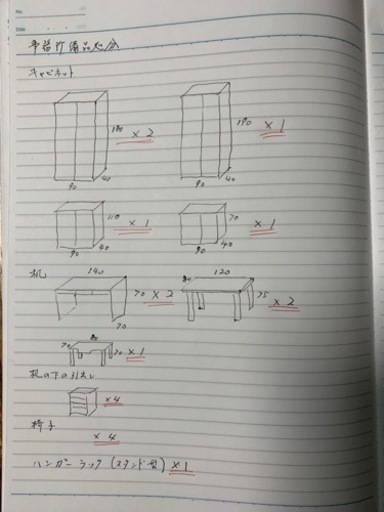 No.
Date
備品処分
キャビネット
180 × 2
90 40
190 × 1
90 40
110 × 1
90 40
70 × 1
90 40
机
140
70 × 2
70
120
75 × 2
70
70 × 1
机の下の引出し
× 4
椅子
× 4
ハンガーラック (スタンド型) × 1